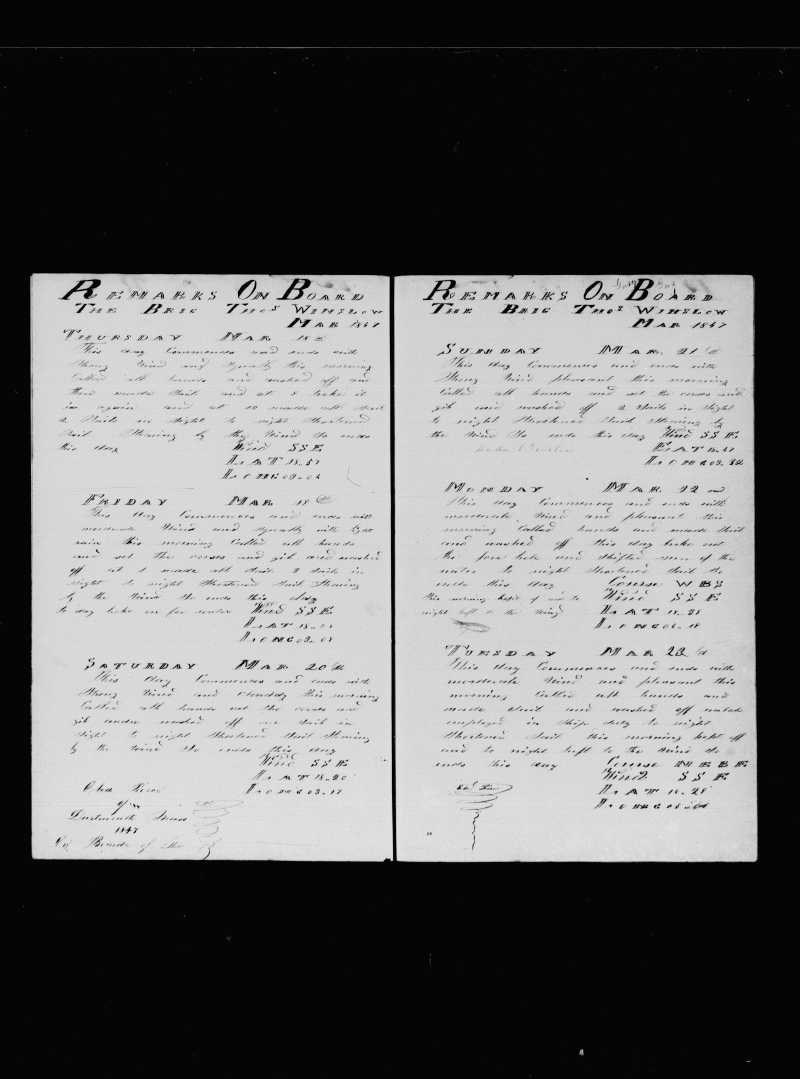 REMARKS ON BOARD
THE BRIG THOS WINSLOW
MAR 1847
THURSDAY MAR 18th
This day Commences and ends with
Strong Wind and Squally this morning
Called all hands and washed off and
then made Sail and at 8 take it
in again and at 10 made all Sail
2 Sails in Sight to night Shortened
Sail Stearing by the Wind So ends
this day Wind SSE
LAT 18..57
LONG 03..04
FRIDAY MAR 19th
This day Commences and ends with
morderate Wind and Squally with
rain this morning Called all hands
and set the corses and gib and washed
off at 1 made all Sail 2 Sails in
Sight to night Shortened Sail Stearing
by the Wind So ends this day
to day broke on for water Wind SSE
LAT 18..08
LONG 03..08
SATURDAY MAR 20th
This day Commences and ends with
Strong Wind and Clouddy this morning
Called all hands set the corses and
gib and washed off one Sail in
Sight to night Shortened Sail Stearing
by the Wind So ends this day
Wind SSE
LAT 18..20
LONG 03..17
of
Dartmouth Mass
1847
On Board of the
REMARKS ON BOARD
THE BRIG THOS WINSLOW
MAR 1847
SUNDAY MAR. 21
This day Commences and ends with
Strong Wind pleasant this morning
Called all hands and set the corses and
gib and washed off 2 Sails in Sight
to night Shortened Sail Stearing by
the Wind So ends this day Wind SSE
LAT 18..47
LONG 03..34
MONDAY MAR 22 nd
This day Commences and ends with
morderate Wind and pleasant this
morning Called hands and made Sail
and washed off this day broke out
the fore hole and shifted some of the
water to night Shortened Sail So
ends this day Course WBS
this morning kept off and to Wind SSE
night luft to the Wind LAT 18..38
LONG 03..18
TUESDAY MAR 23
This day Commences and ends with
morderate Wind and pleasant this
morning Called all hands and
made Sail and washed off
employed in Ships duty to night
Shortened Sail this morning kept off
and to night luft to the Wind So
ends this day Course NEBE
Wind SSE
LAT 18..28
LONG